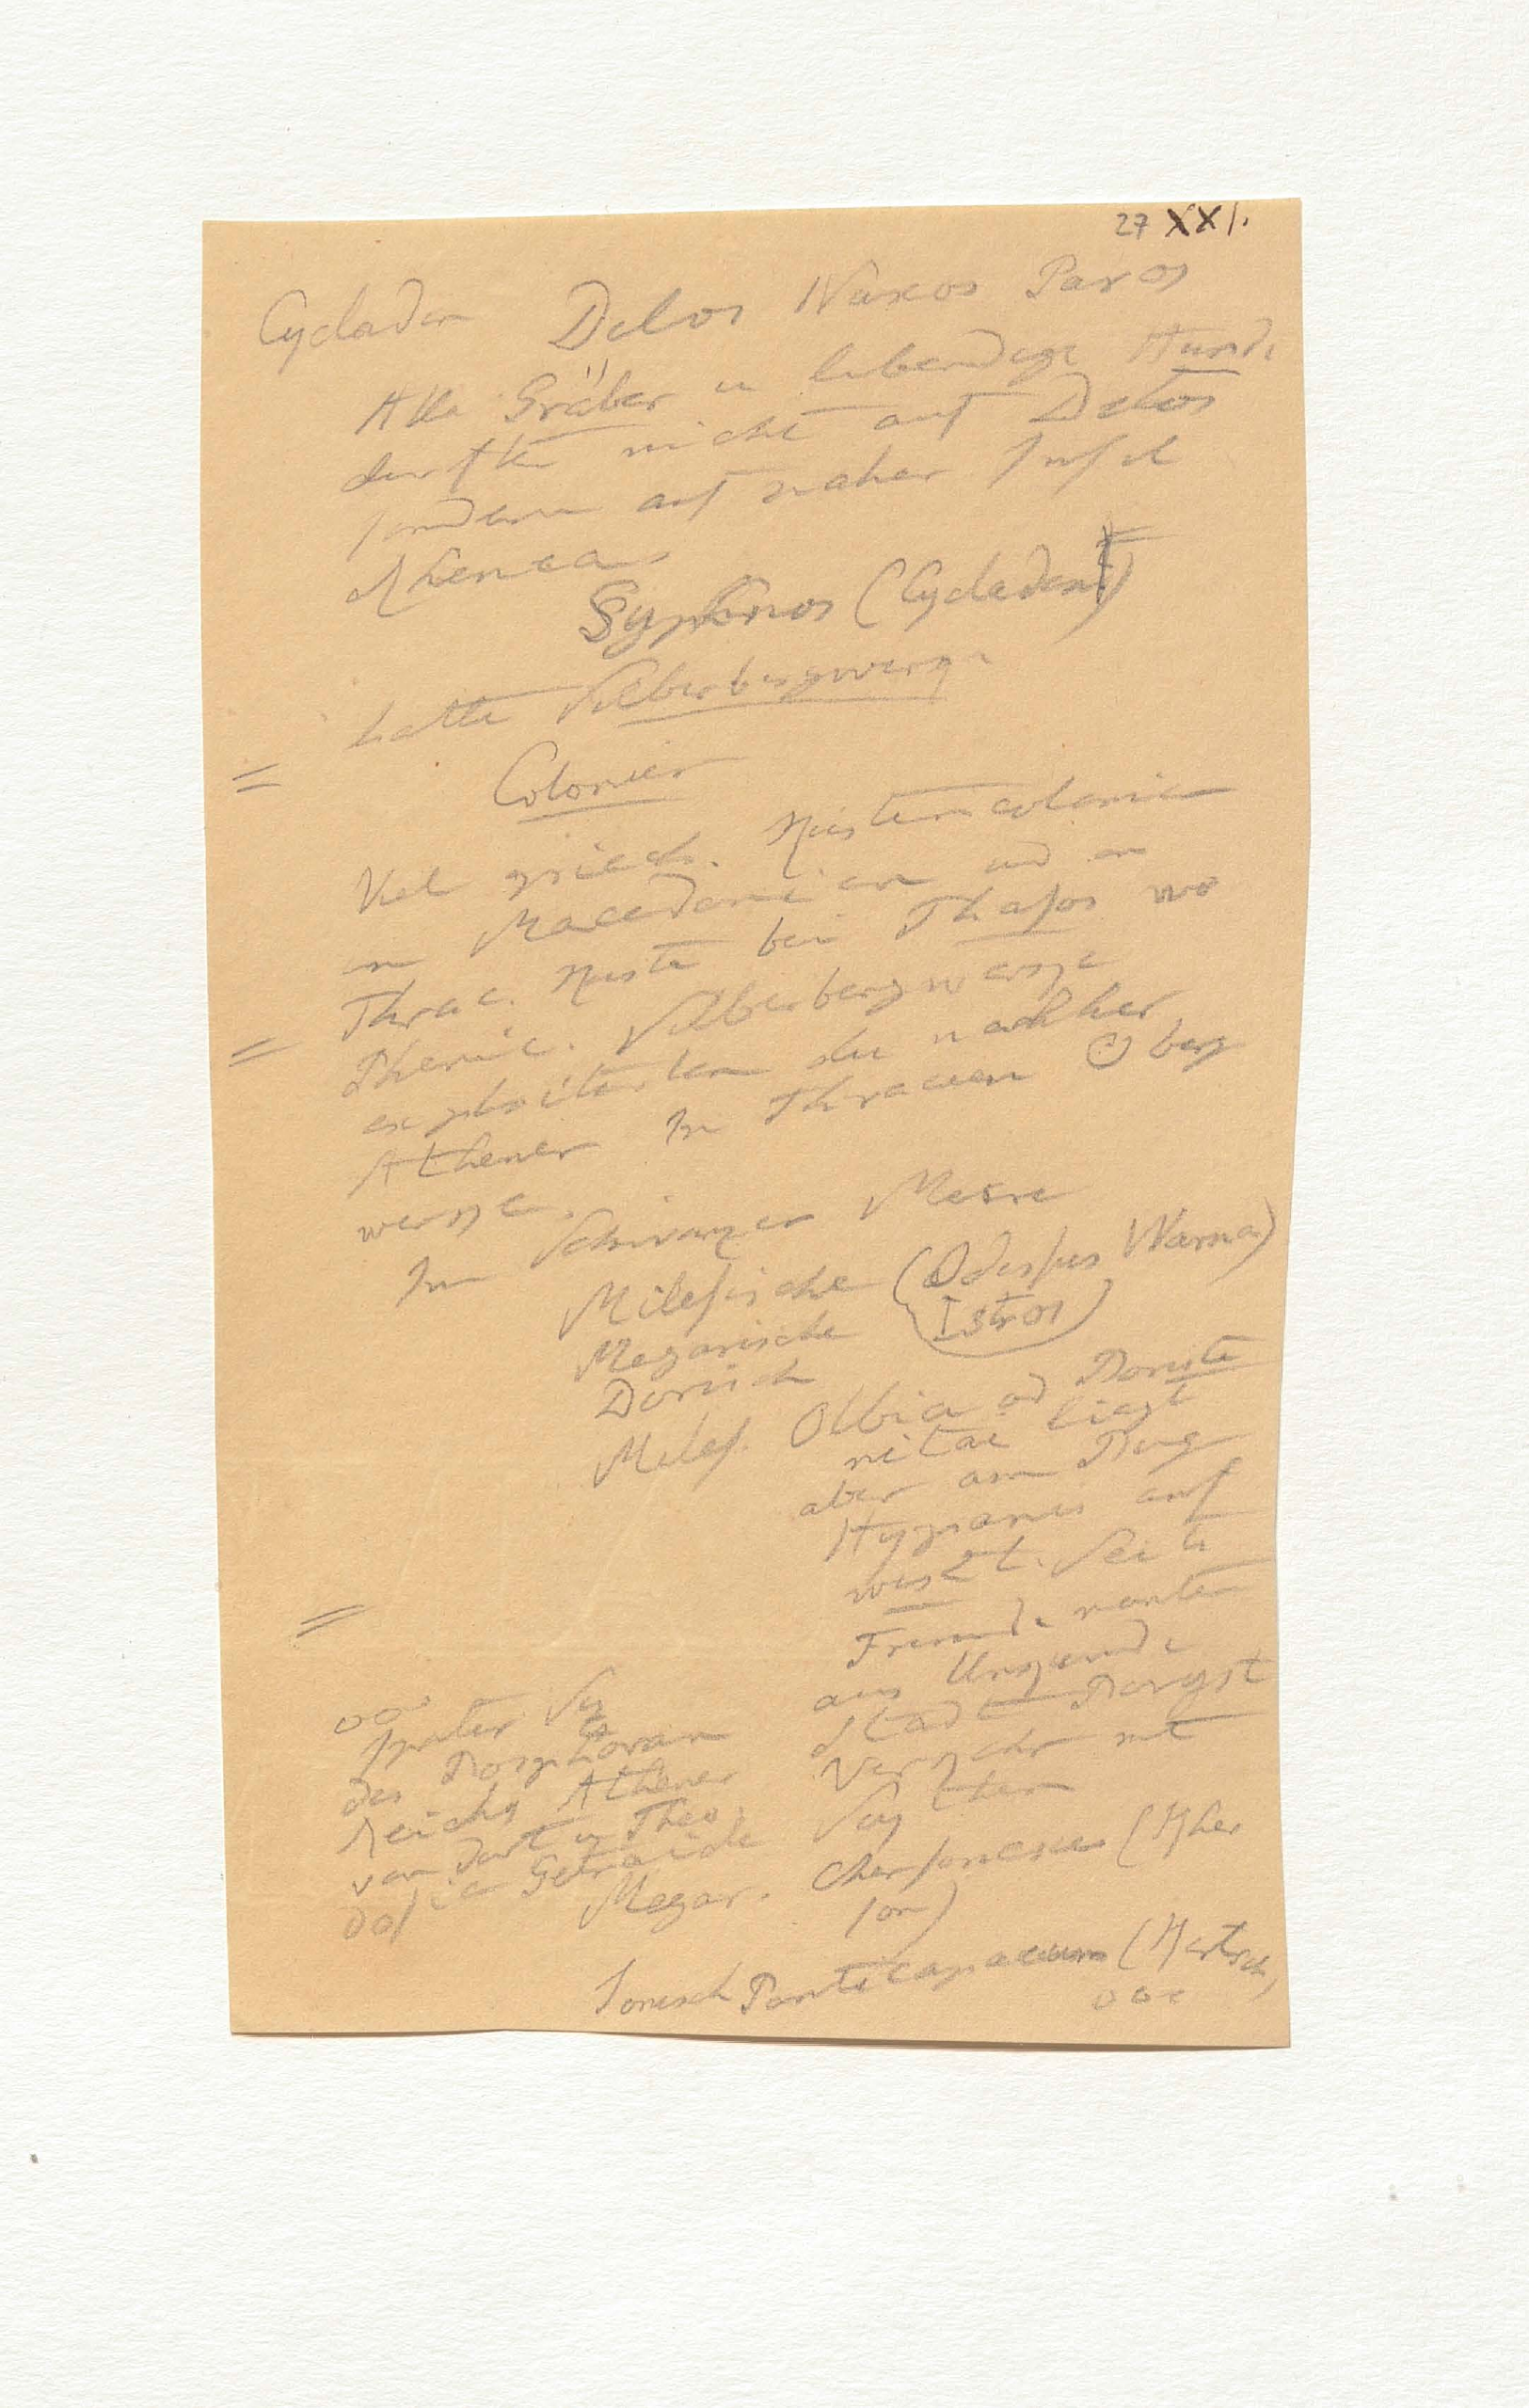 27 XXI.
Cycladen Delos Naxos Paros
Alle Gräber u lebendige Hunde
durften nicht auf Delos
sondern auf naher Insel
Rhenea
Syphnos (Cycladen)
hatte Silberbergwerge
Colonien
Viel griech. Küstencolonien
in Macedonien und an
Thrac. Küste bei Thasos wo
Phenic. Silberbergwerge
exploitirten die nachher
Athener In Thracien Berg
werge.
Im Schwarzen Meere
Milesische (Odessus Warna)
Megarische Istros)
Dorisch
Miles. Olbia od Borüste
nitae liegt
aber am Bug
Hypanis auf
westl. Seite
Fremde nanten
aus Unkunde
Stadt Boryst
Verkehr mit
Scythen
ooo
später Sitz
des Bosphoran
Reichs Athener
von dort u Theo
dosia Getraide
Megar. Chersonesus (Kher
son)
Ionisch Panticapaeum (Kertsch)
ooo